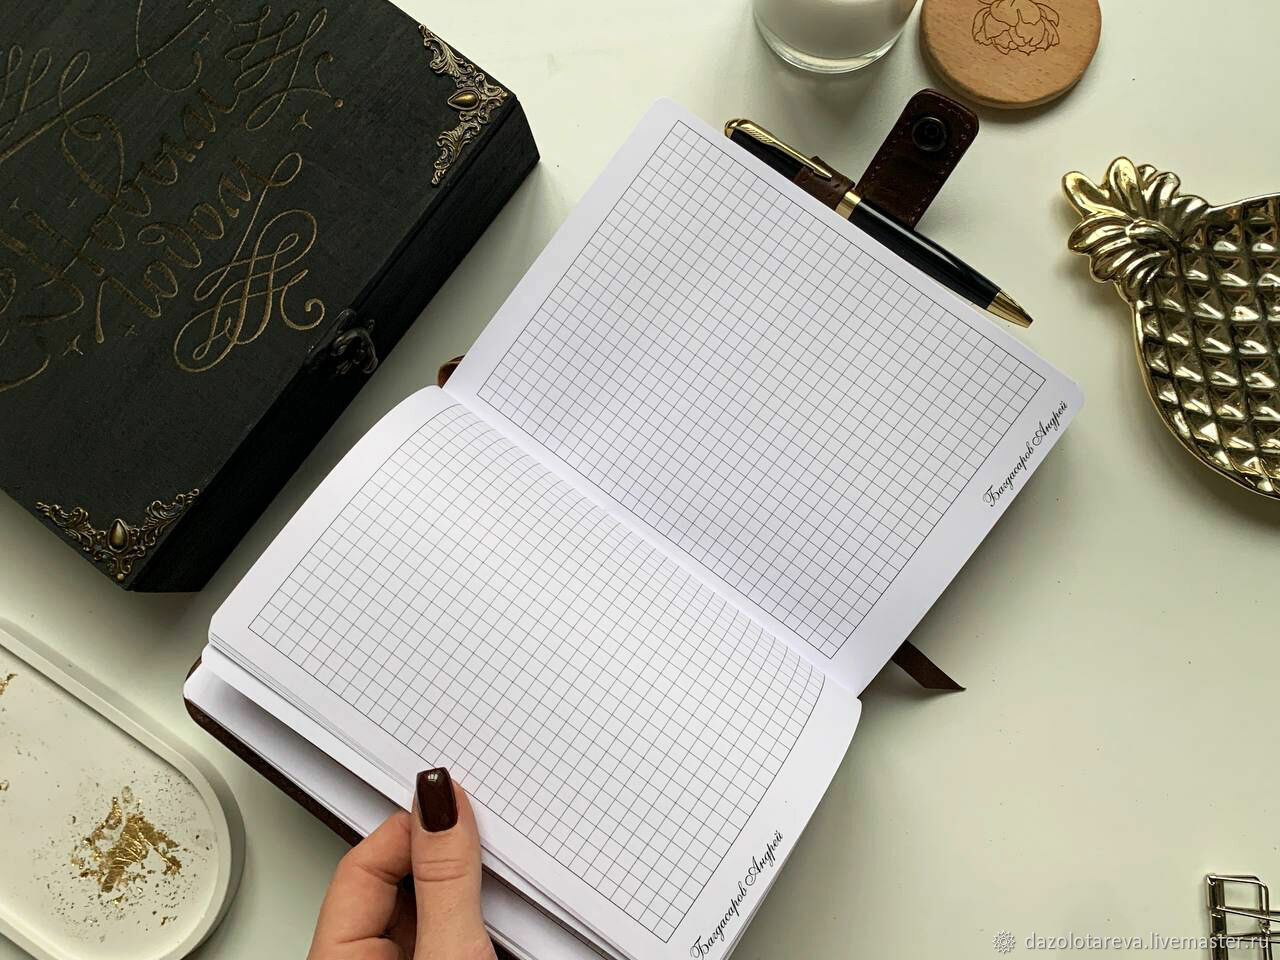 С Новым
Годом
Багдасаров Андрей
Багдасаров Андрей
dazolotareva.livemaster.ru